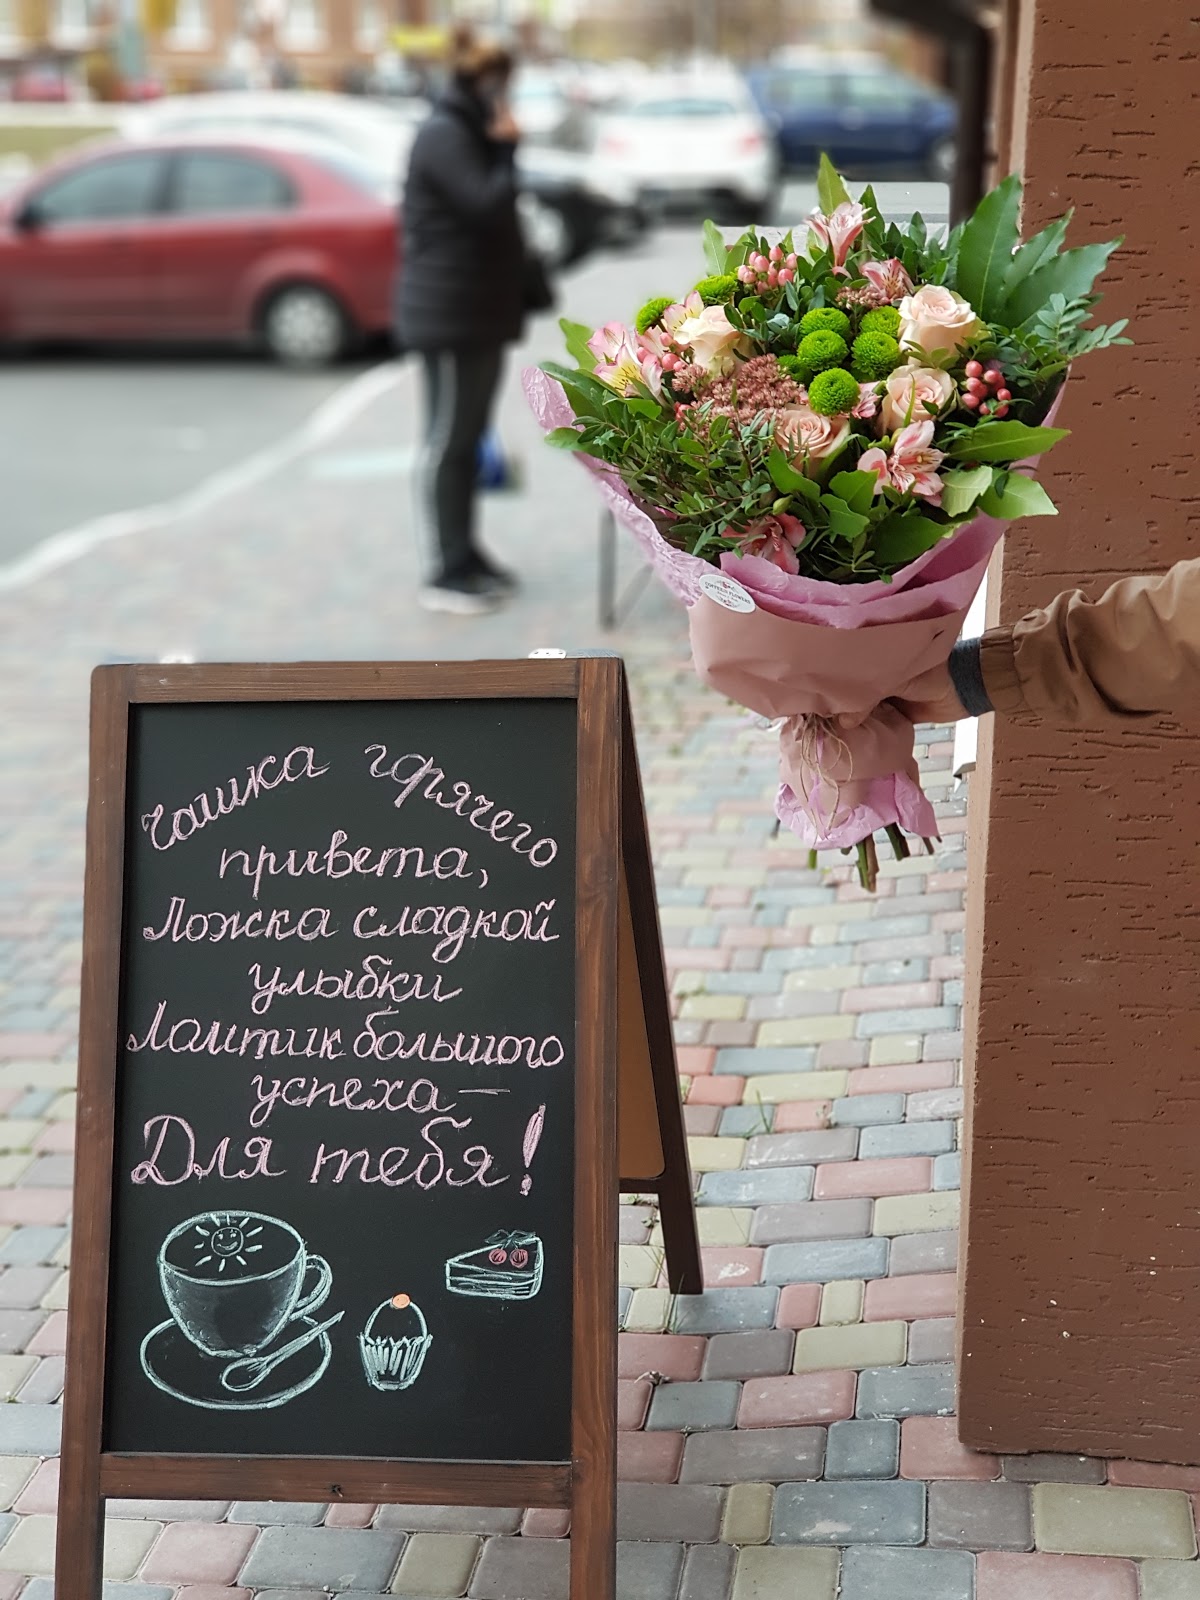 Чашка горячего
привета,
Ложка сладкой
улыбки
Ломтик большого
успеха—
Для тебя!